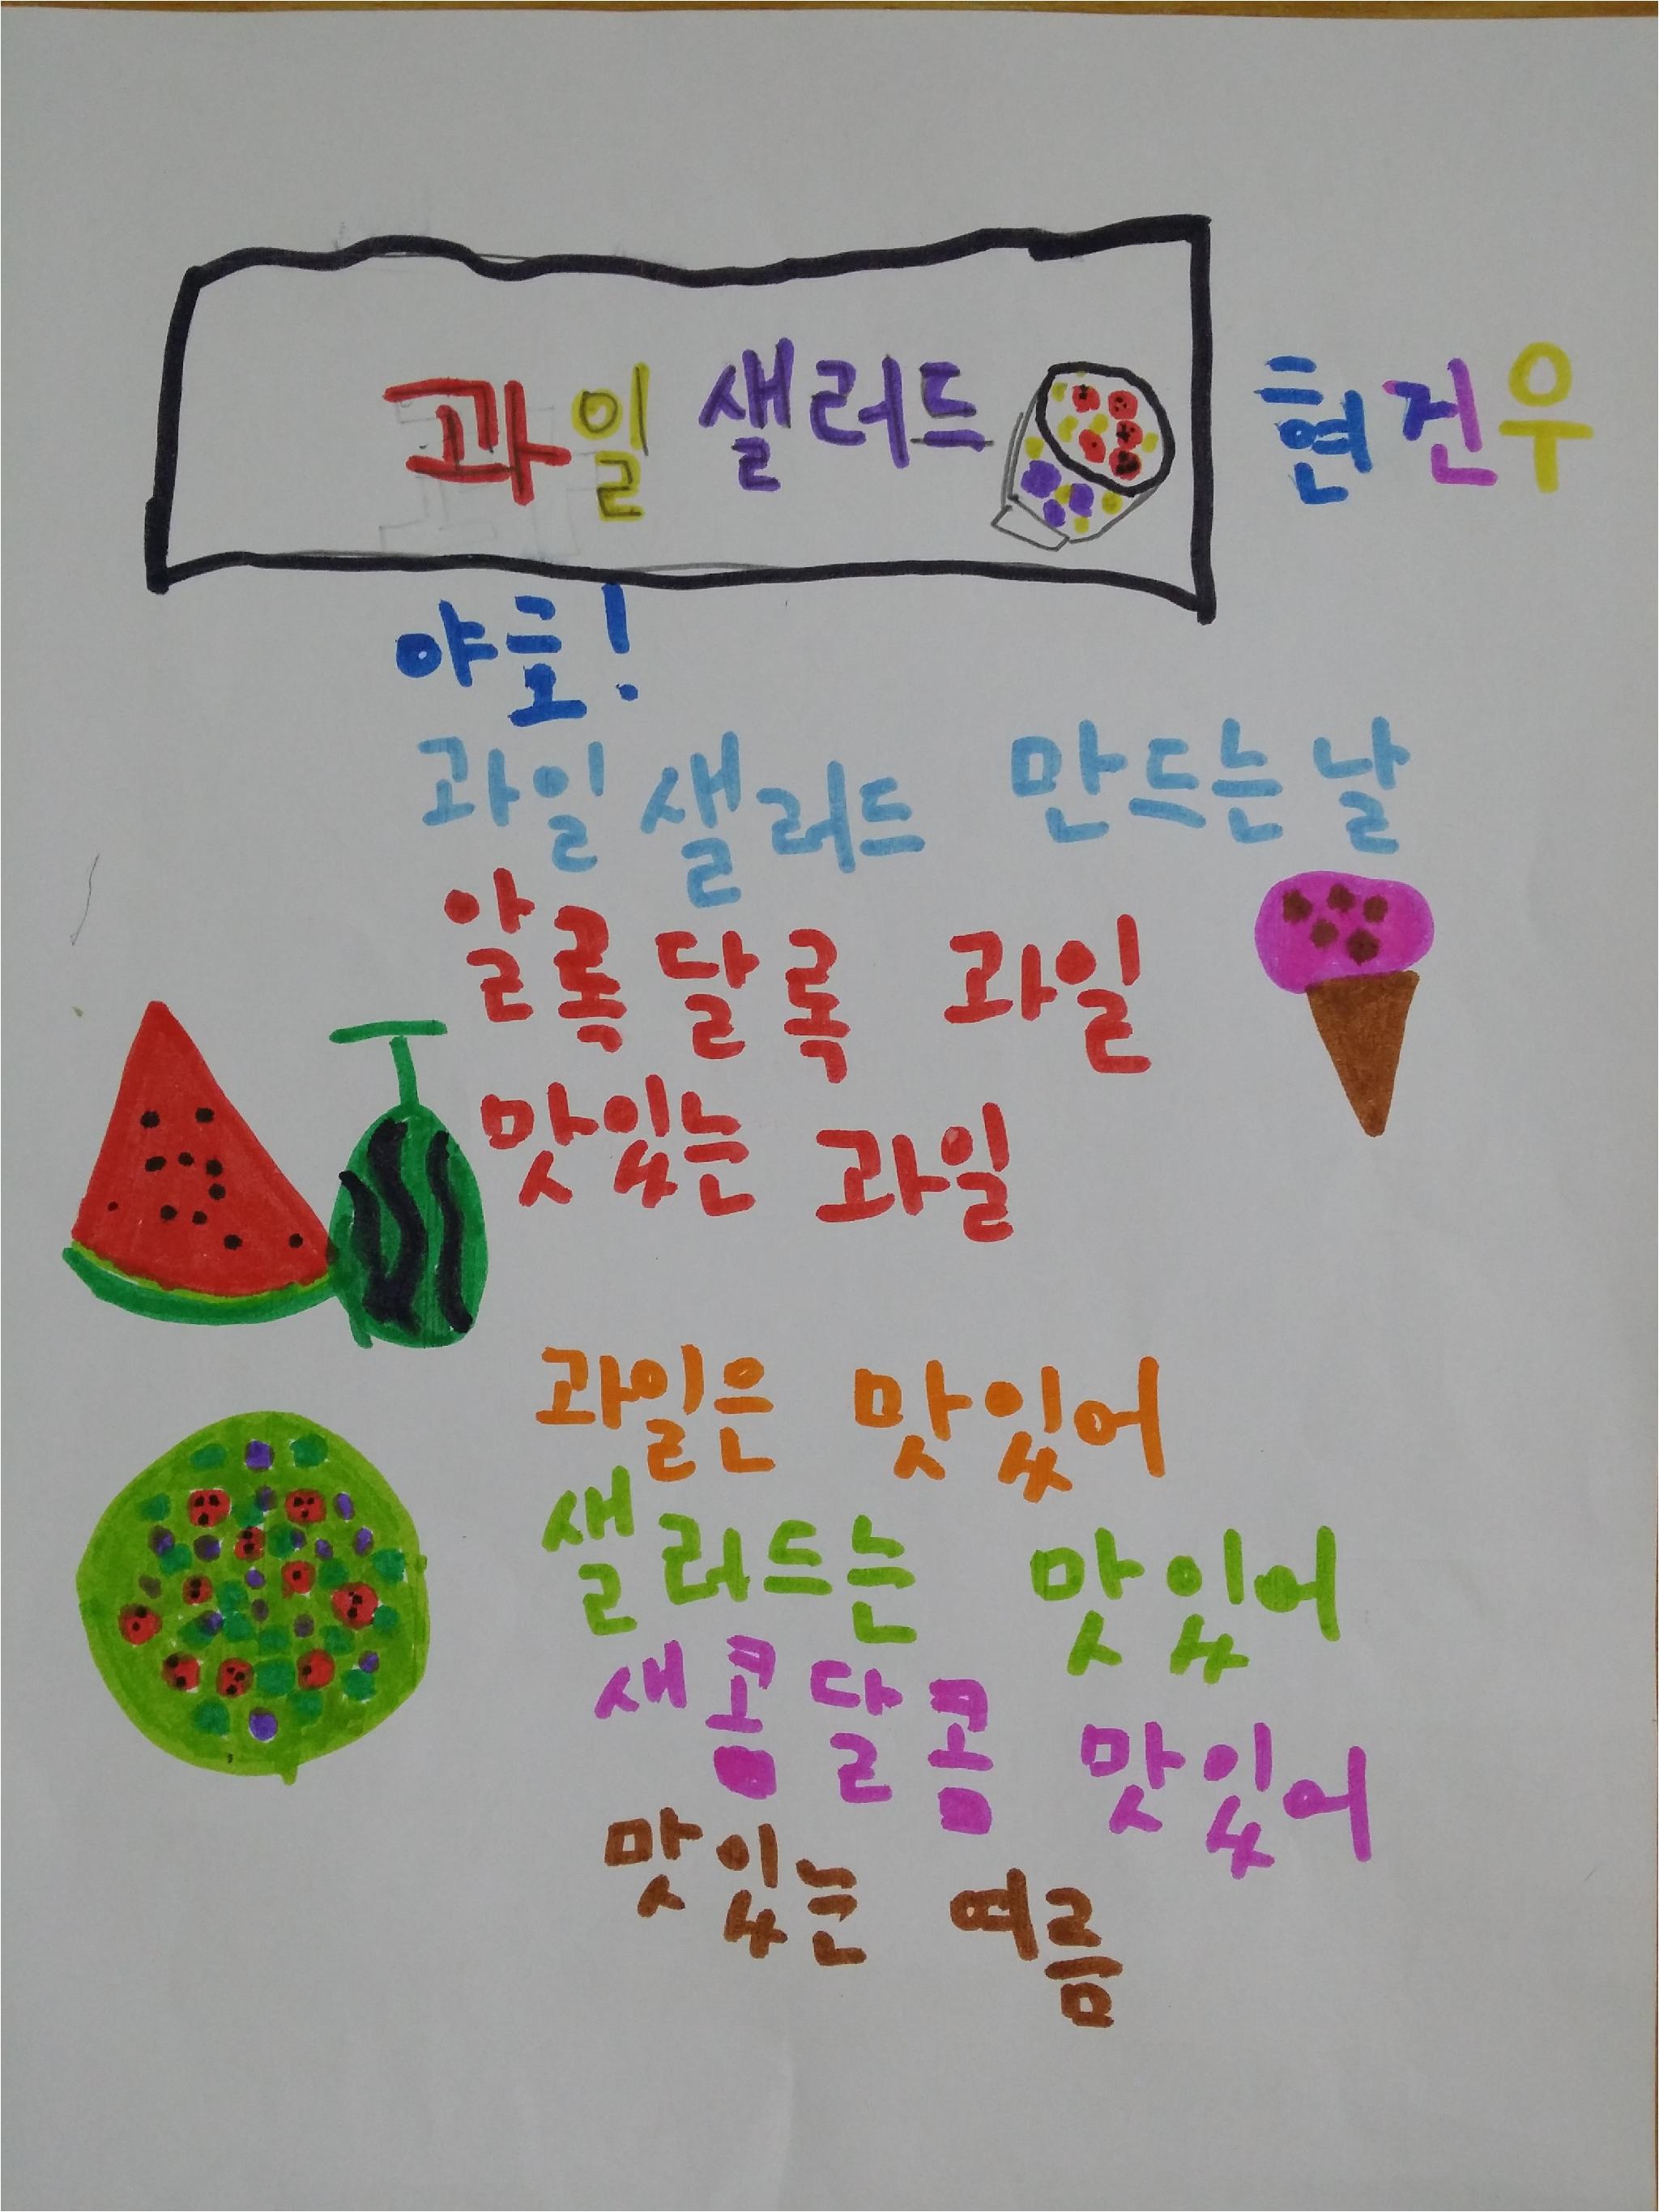 과일 샐러드 현진우
야호!
과일 샐러드 만드는 날
알록달록 과일
맛있는 과일
과일은 맛있어
샐러드는 맛있어
새콤달콤 맛있어
맛있는 여름